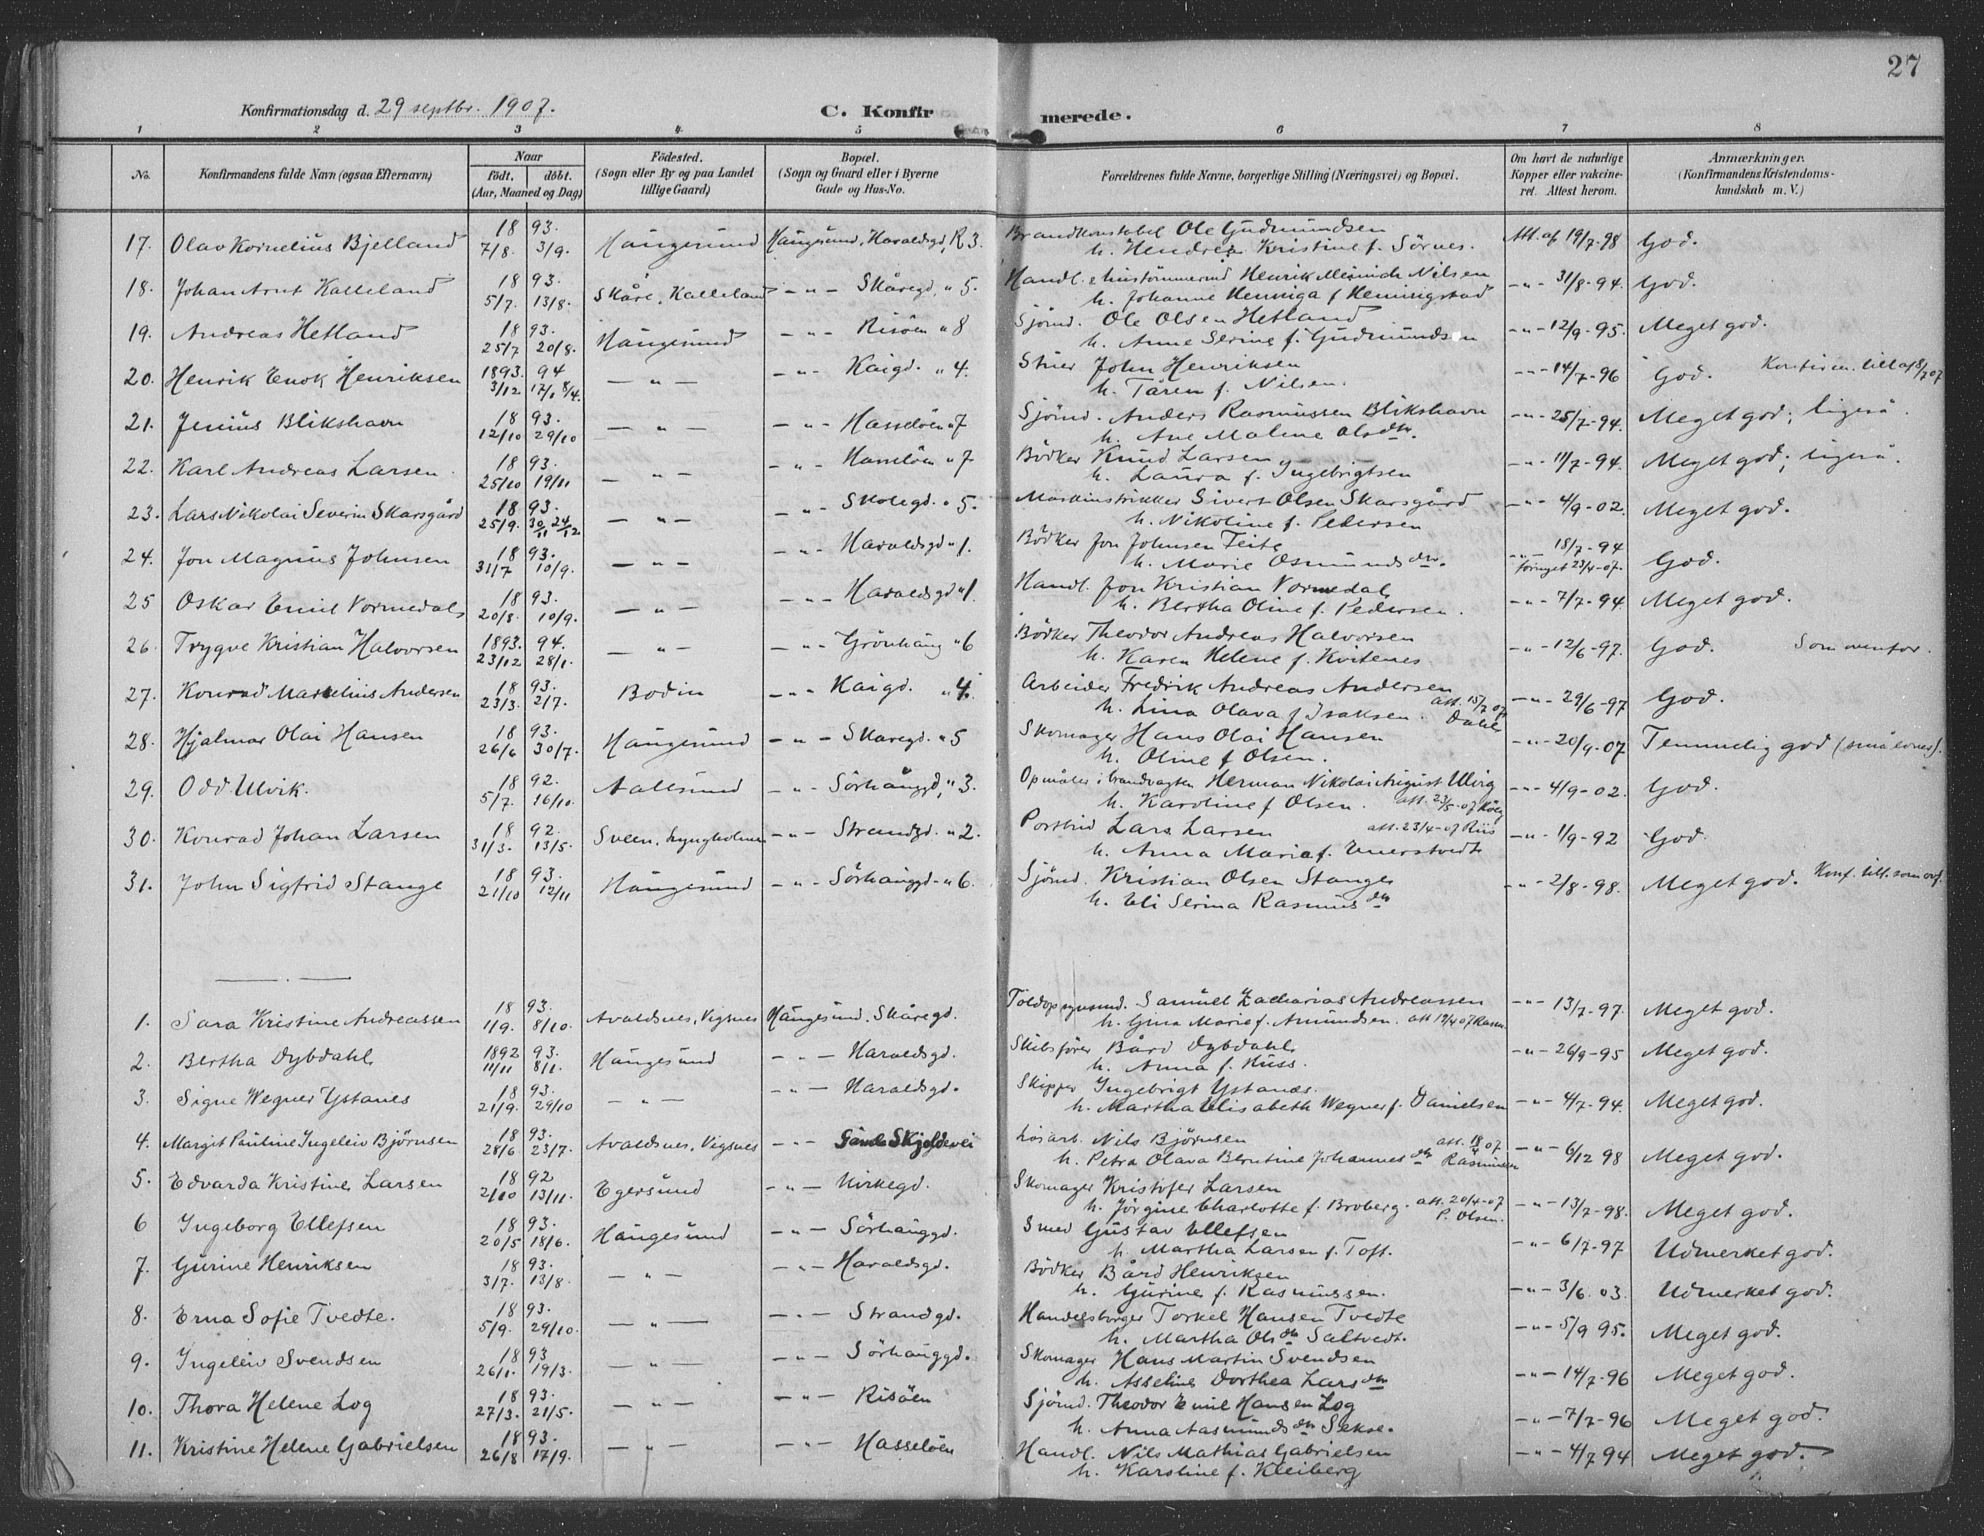 27
Konfirmationsdag d. 29 septbr. 1907.
C. Konfirmerede.
1 2 3 4 5 6 7 8
No. Konfirmandens fulde Navn (ogsaa Efternavn) Naar födt. döbt. (Aar, Maaned og Dag) Födested. (Sogn eller By og paa Landet tillige Gaard) Bopæl. (Sogn og Gaard eller i Byerne Gade og Hus-No. Forældrenes fulde Navne, borgerlige Stilling (Næringsvei) og Bopæl. Om havt de naturlige Kopper eller vakcineret. Attest herom. Anmærkninger. (Konfirmandens Kristendomskundskab m. V.)
17. Olav Kornelius Bjelland 1893. 7/8. 3/9. Haugesund Haugesund, Haraldsgd, R. 3. Brandkonstabel Ole Gudmundsen Att. af 19/7-98 God.
h. Hendrea Kristine f. Sörnes.
18. Johan Arnt Kalleland 1893. 5/7. 13/8. Skåre, Kalleland -"- Skåregd. " 5. Handl. Henrik Nilsen -"- 31/8-94. God.
h. Johanne Henriga f.
19. Andreas Hetland 1893. 25/7 20/8. Haugesund -"- Risöen " 8 Sjömd. Ole Olsen Hetland -"- 12/9-95. Meget god.
h. Anne Serine f. Gudmundsen
20. Henrik Enok Henriksen 1893. 94 3/12 17/1 8/4. -"- -"- Kaigd. " 4. Stuer John Henriksen -"- 14/7-96 God. Konfirm. till. af 8/7 07
h. Tåren f. Nilsen.
21. Jenius Blikshavn 1893. 12/10 29/10 -"- -"- Hasselöen " 7 Sjömd. Anders Rasmussen Blikshavn -"- 25/7-94. Meget god; ligeså.
h. Ane Malene Olsdtr.
22. Karl Andreas Larsen. 1893. 25/10 19/11 -"- -"- Hasselöen " 7 Bödker Knud Larsen -"- 11/7-94. Meget god; ligeså.
h. Laura f. Ingebrigtsen
23. Lars Nikolai Severin Skarsgård 1893. 25/9. 30/11 24/12 -"- -"- Skolegd. " 5. Maskinstrikker Sivert Olsen Skarsgård -"- 4/9-02. Meget god.
h. Nikoline f. Pedersen
24. Jon Magnus Johnsen 1893. 31/7 10/9. -"- -"- Haraldsgd " 1. Bödker Jon Johnsen Teite -"- 18/7-94 fornyet 23/4-07. God.
h. Marie Osmundsdtr.
25 Oskar Emil Vormedal 1893. 20/8. 10/9. -"- -"- Haraldsgd " 1. Handl. Jon Kristian Vormedal -"- 7/7-94. Meget god.
h. Bertha Oline f. Pedersen.
26. Trygve Kristian Halvorsen 1893. 94. 23/12 28/1. -"- -"- Grönhaug " 6 Bödker Theodor Andreas Halvorsen -"- 12/6-97. God. Som ovenfor.
h. Karen Helene f. Kvitenes
27. Konrad Marselius Andersen 1893. 23/3. 2/7. Bodin -"- Kaigd. " 4. Arbeider Fredrik Andreas Andersen -"- 29/6-97 God.
h. Lina Olava f. Isaksen. att. 15/7 07 Dahl
28. Hjalmar Olai Hansen 1893. 26/6 30/7. Haugesund -"- Skåregd. " 5 Skomager Hans Olai Hansen -"- 20/9-07 Temmelig god (små evner).
h. Oline f. Olsen.
29. Odd Ulvik. 1892. 5/7. 16/10. Aallesund -"- Sörhauggd, " 3. Opmåler i brandvagten Herman Nikolai August Ulvig -"- 4/9-02. God.
h. Karoline f. Olsen. att. 23/5-07
30. Konrad Johan Larsen 1892. 31/3. 13/5. Sveen, Lyngholmen -"- Strandgd. " 2. Postbud Lars Larsen att. 23/4-07 Riis -"- 1/9-92 God.
h. Anna Maria f. Enerstvedt
31. John Sigfrid Stange 1893. 21/10 12/11 Haugesund -"- Sörhauggd. " 6. Sjömd. Kristian Olsen Stange -"- 2/8-98. Meget god. Konf. till. som ovf.
h. Eli Serina Rasmusdtr
1. Sara Kristine Andreassen 1893. 1/9. 8/10. Avaldsnes, Vigsnes Haugesund, Skåregd. Toldopsynsmd. Samuel Zacharias Andreassen -"- 13/7-97. Meget god.
h. Gina Marie f. Amundsen. att 19/4 07 Rasm.
2. Bertha Dybdahl 1892 93. 11/11 8/1. Haugesund -"- Haraldsgd. Skibsförer Bård Dybdahl -"- 26/9-95 Meget god.
h. Anna f. Huss.
3. Signe Wegner Ystanes 1893. 21/9. 29/10 -"- -"- Haraldsgd. Skipper Ingebrigt Ystanæs. -"- 4/7-94. Meget god.
h. Martha Elisabeth Wegner f. Danielsen
4. Margit Pauline Ingeleiv Bjørnsen 1893. 28/6 23/7. Avaldsnes, Vigsnes -"- Skjoldevei Løsarb. Nils Bjørnsen -"- 6/12 98 Meget god.
h. Petra Olava Berntine Johannesdtr att. 18/4 07 Rasmusen
5. Edvarda Kristine Larsen 1892 2/10 13/11. Egersund -"- Kirkegd. Skomager Kristofer Larsen -"- 13/7-98. Meget god.
h. Jörgine Charlotte f. Broberg. att. 20/4-07 P. Olsen.
6 Ingeborg Ellefsen 1893. 20/5 18/6. Haugesund -"- Sörhauggd. Smed Gustav Ellefsen -"- 6/7-97 Udmerket god.
h. Martha Larsen f. Toft.
7. Gurine Henriksen 1893. 3/7. 13/8. -"- -"- Haraldsgd. Bödker Bård Henriksen -"- 3/6. 03. Udmerket god.
h. Gurine f. Rasmussen.
8. Erna Sofie Tvedte. 1893. 5/9. 29/10. -"- -"- Strandgd. Handelsborger Torkel Hansen Tvedte -"- 5/9 95. Meget god.
h. Martha Olsdtr Saltvedt.
9. Ingeleiv Svendsen 1893 26/1. 19/3. -"- -"- Sörhauggd. Skomager Hans Martin Svendsen -"- 14/7-96 Meget god.
h. Asseline Dorthea Larsdtr
10. Thora Helene Log 1893. 27/3. 21/5. -"- -"- Risöen Sjömd. Theodor Emil Hansen Log -"- 7/7-96 Meget god.
h. Anna Aasmundsdtr Sekse.
11. Kristine Helene Gabrielsen 1893. 26/8 17/9. -"- -"- Hasselöen Handl. Nils Mathias Gabrielsen -"- 4/7 94 Meget god.
h. Karstine f. Kleiberg